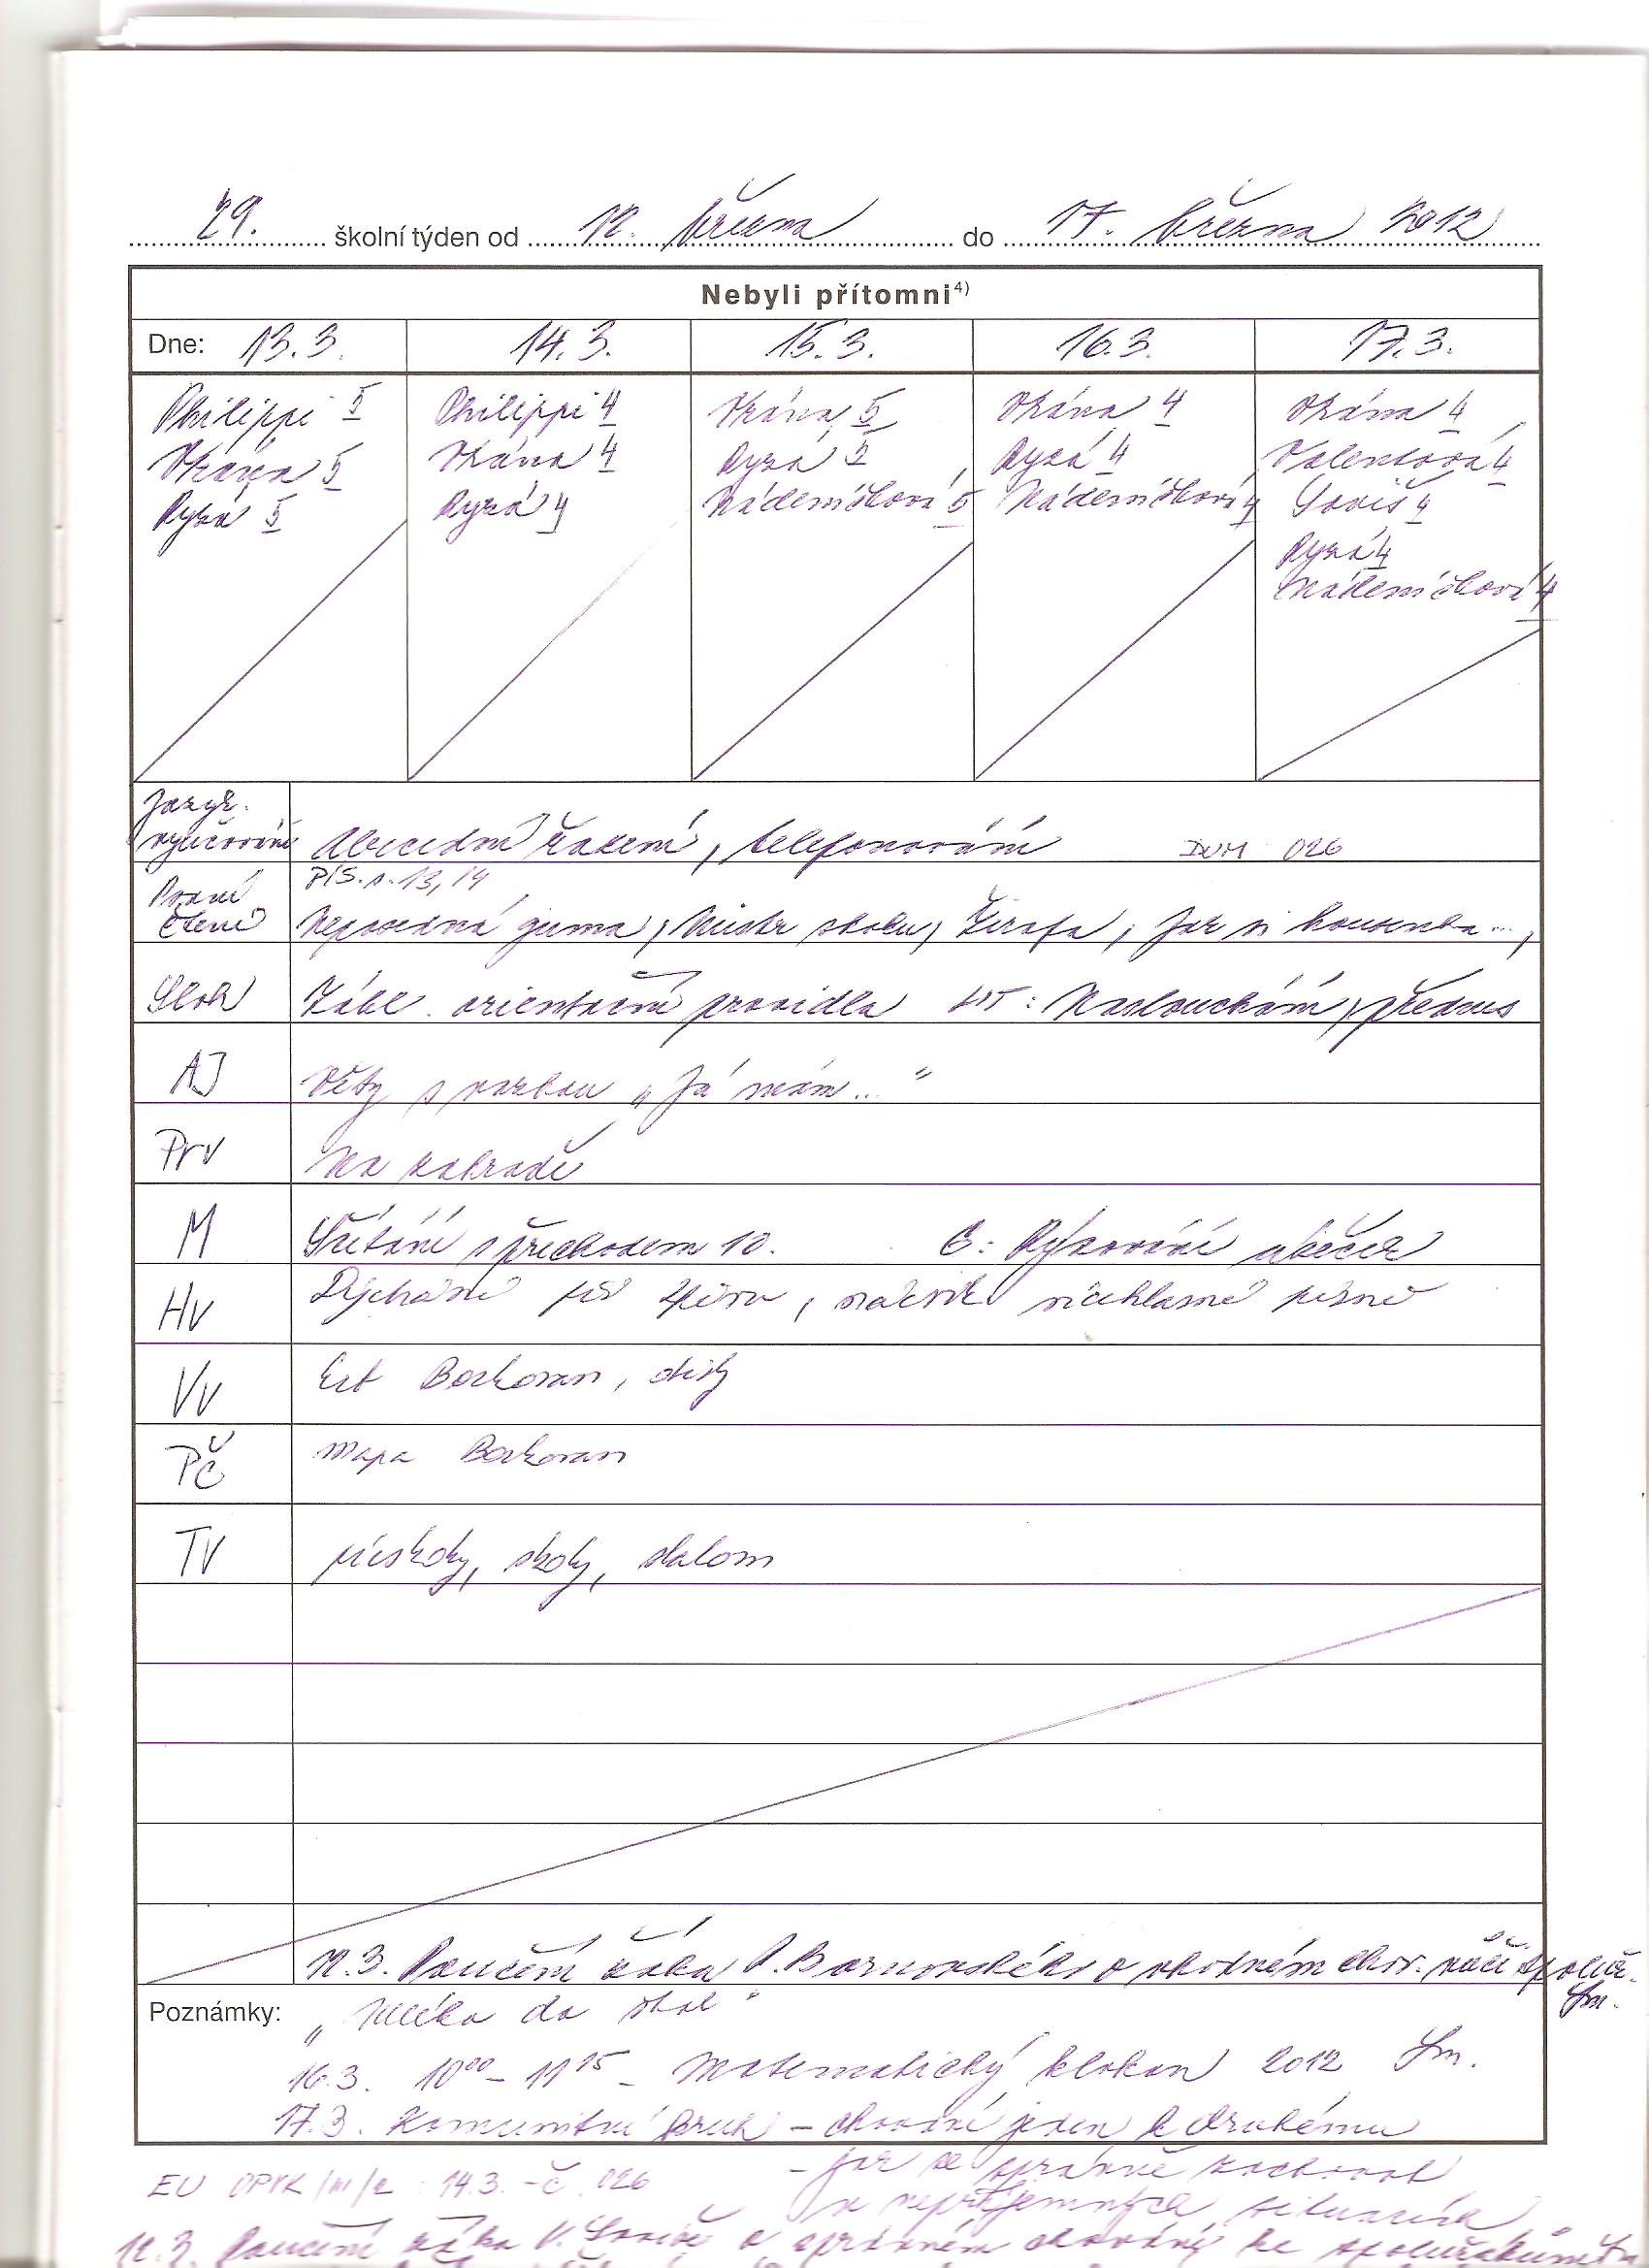 29. školní týden od 12. března do 17. března 2012
Nebyli přítomni4)
Dne: 13.3. 14.3. 15.3. 16.3. 17.3.
Philippi 5 Philippi 4 Vrána 5 Vrána 4 Vrána 4
Vrána 5 Vrána 4 Ryzá 5 Ryzá 4 Valentová 4
Ryzá 5 Ryzá 4 Nádeníčková 5 Nádeníčková 4 Soviš 4
Ryzá 4
Nádeníčková 4
Jazyk.
vyučování Abecední řazení, telefonování DUM 026
Psaní PÍS. s. 13, 14
čtení Neposedná guma, Mistr skoku, Žirafa, Jak si housenka...,
Sloh Zákl. orientační pravidla : Naslouchání, přednes
AJ Věty s vazbou „Já mám..."
Prv Na zahradě
M Sčítání s přechodem 10. G: Rýsování úseček
Hv Dýchání při zpěvu, nácvik vícehlasné písně
Vv Erb Borkovan,
PČ Mapa Borkovan
TV přeskoky, skoky, slalom
12.3. Poučení žáka P. Barnovského o vhodném chov. vůči spoluž.
Sm.
Poznámky: „Mléko do škol"
16.3. 10 00 - 11 15 - Matematický klokan 2012 Sm.
17.3. Komunitní kruh - chování jeden k druhému
- jak se správně zachovat
v nepříjemných situacích
EU OPVK /III/2 14.3. - č. 026
12.3. Poučení žáka V. Soviše o správném chování ke spolužákům Sm